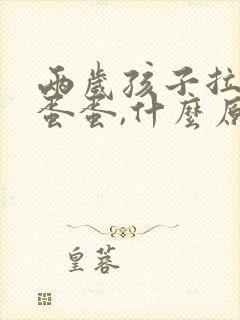 兩歲孩子拉
蛋蛋,什麼原
皇蓉